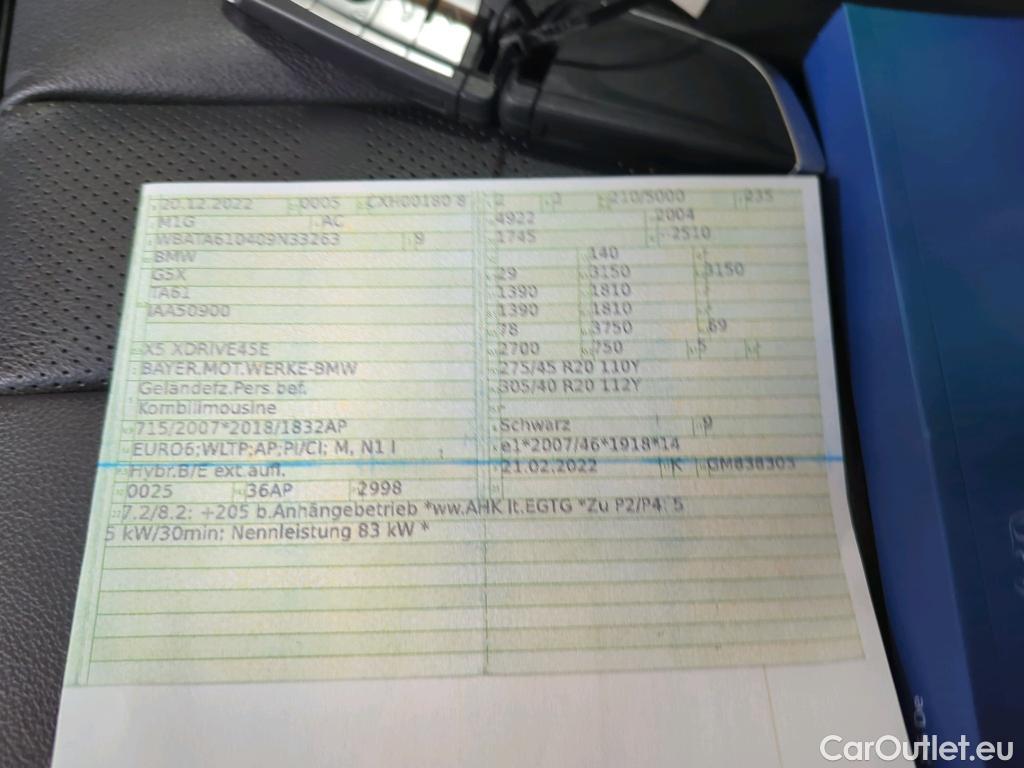 20.12.2022 0005 CXH00180 8
M1G AC
WBATA610409N33263 9
BMW
G5X
TA61
IAA50900
X5 XDRIVE45E
BAYER.MOT.WERKE-BMW
Geländefz.Pers.bef.
Kombilimousine
715/2007*2018/1832AP
EURO6;WLTP;AP;PI/CI; M, N1 I
Hybr.B/E ext.aufl.
0025 36AP 2998
2 2 210/5000 235
4922 2004
1745 2510
140
29 3150 3150
1390 1810
1390 1810
78 3750 69
2700 750 5
275/45 R20 110Y
305/40 R20 112Y
Schwarz 9
e1*2007/46*1918*14
21.02.2022 K GM838303
7.2/8.2: +205 b.Anhängebetrieb *ww.AHK lt.EGTG *Zu P2/P4: 5
5 kW/30min: Nennleistung 83 kW *
CarOutlet.eu